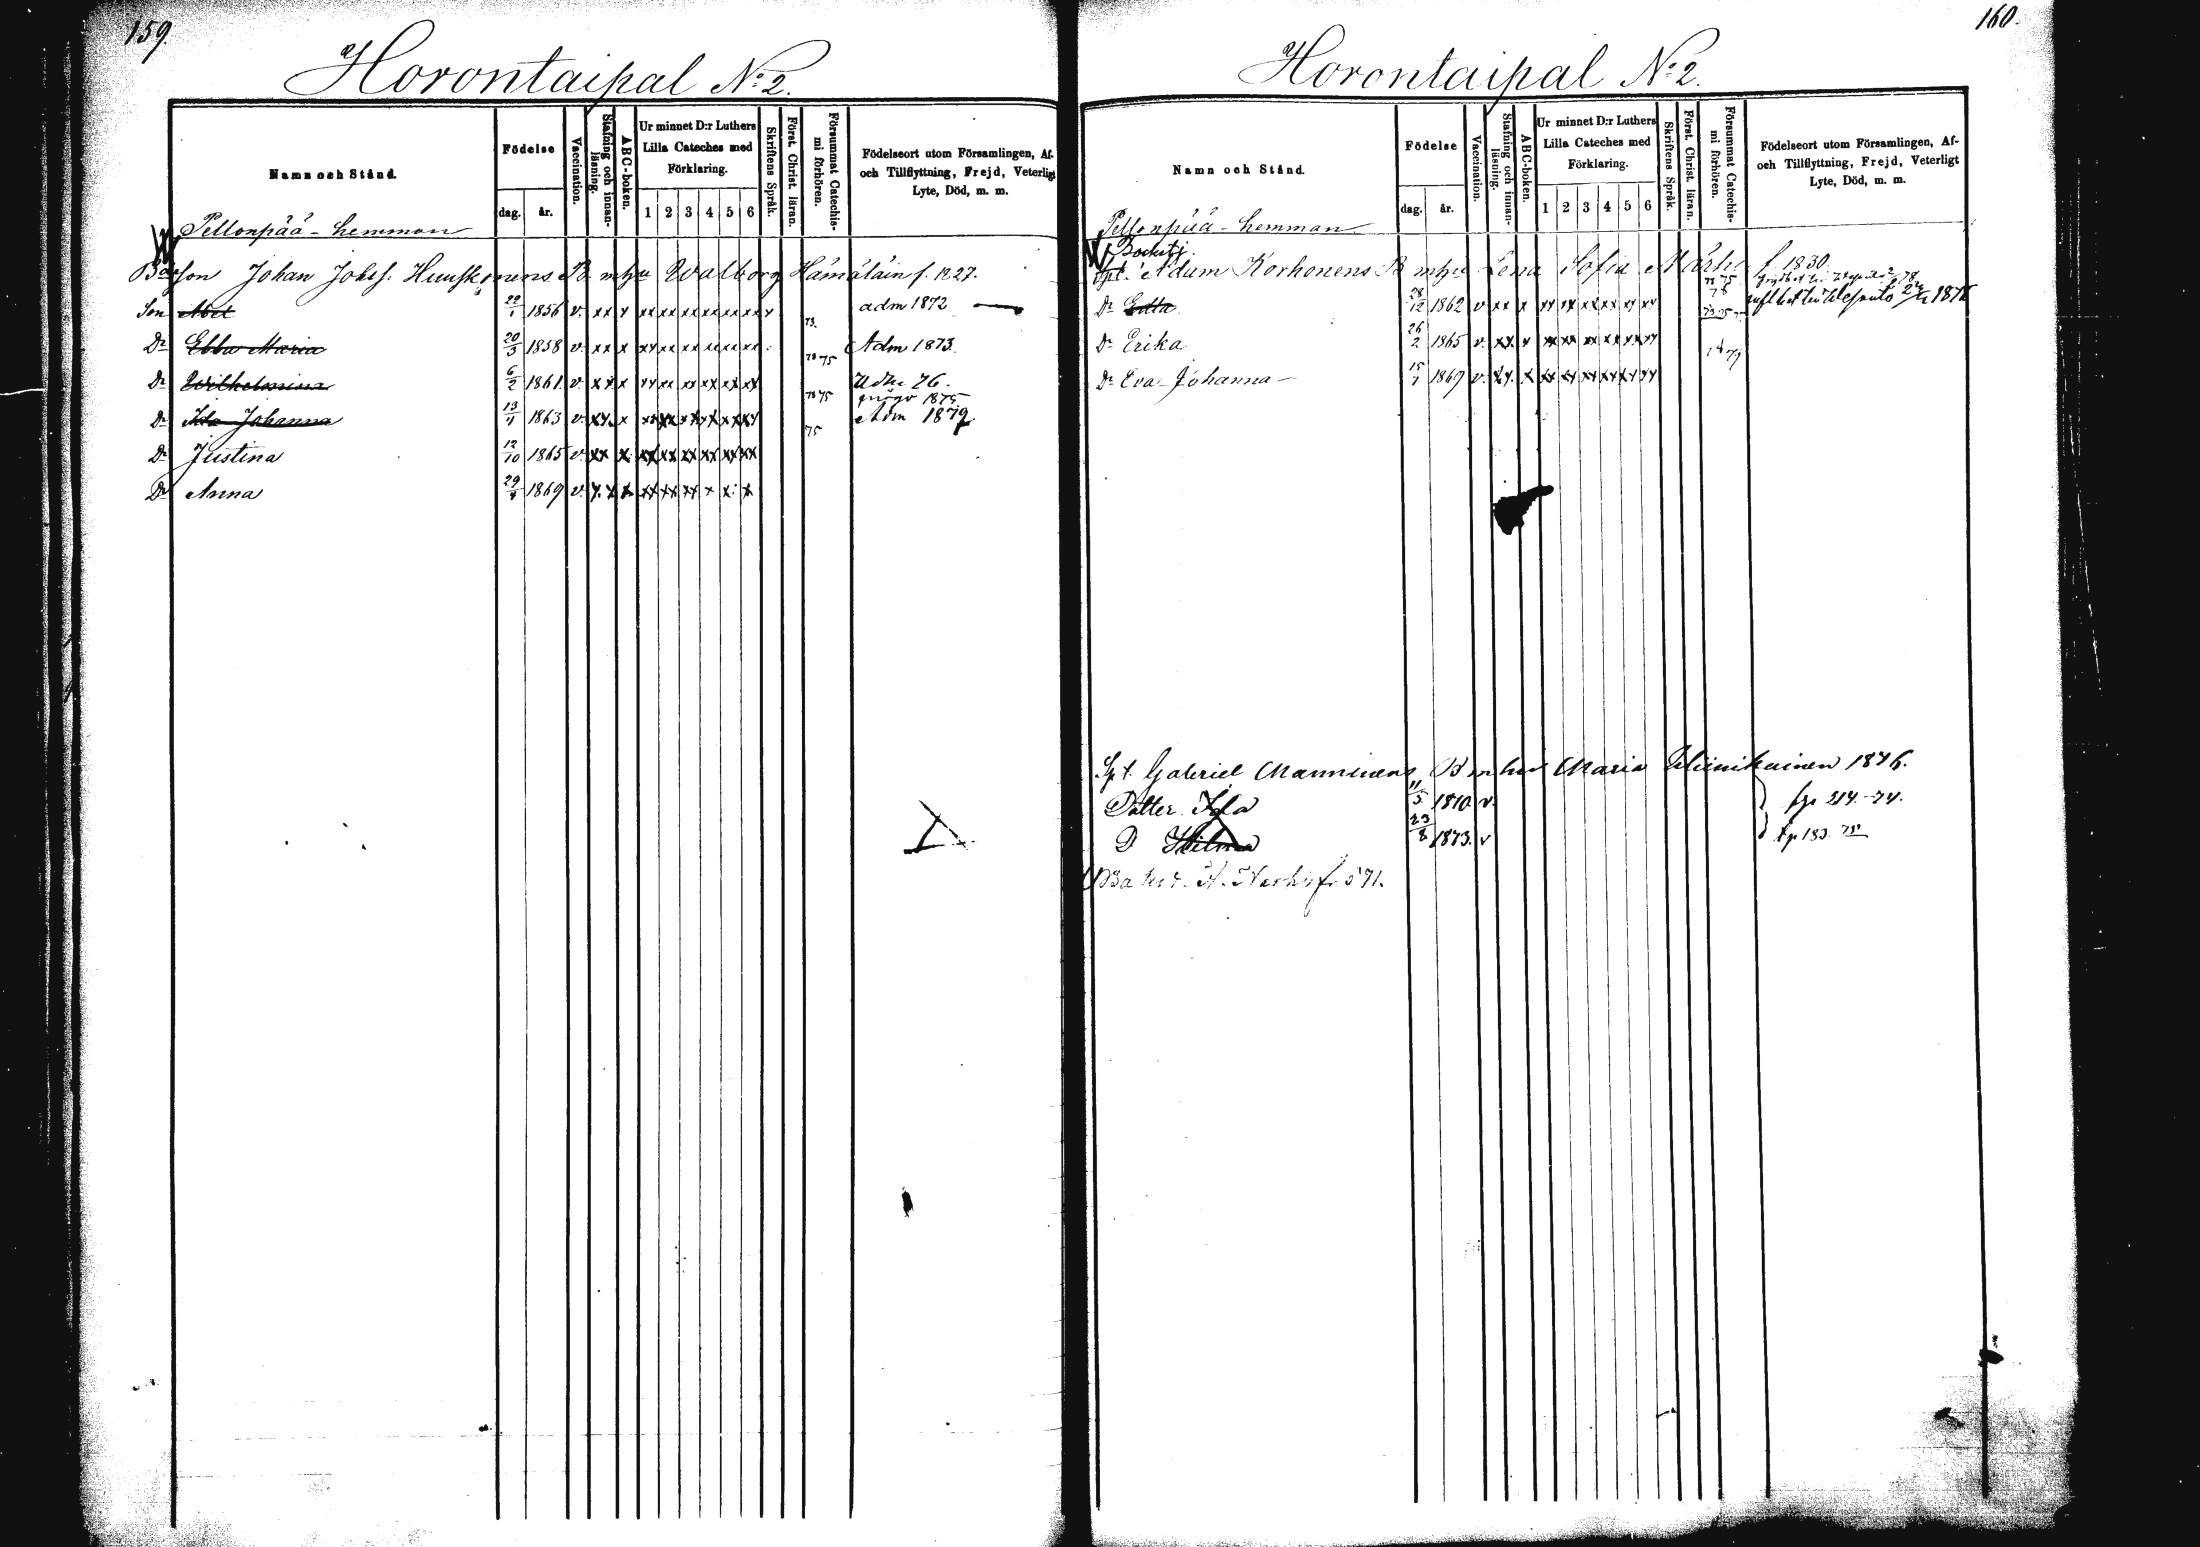 159.
Horontaipal No 2.
Namn och Stånd.
Födelse
dag. år.
Vaccination.
Stafning och innan-läsning.
ABC-boken.
Ur minnet D:r Luthers
Lilla Cateches med
Förklaring.
1 2 3 4 5 6
Skriftens Språk.
Först. Christ. läran.
Försummat Catechis-mi förhören.
Födelseort utom Församlingen, Af-
och Tillflyttning, Frejd, Veterligt
Lyte, Död, m. m.
Pellonpää - hemman
Johan Johs. Huuskonens B mhu Walborg Hämäläin f. 1827.
Son Abel 22/1 1856 v. xx x xx xx xx xx xx xx x 73. adm 1872
Dr Ebba Maria 20/3 1858 v. xx x xx xx xx xx xx xx 75 Adm 1873.
Dr Wilhelmina 6/2 1861. v. xx x xx xx xx xx xx xx 75 76.
1875
Dr Ida Johanna 13/4 1863 v. xx x xx xx xx xx xx xx 75 Adm 1879
Dr Justina 12/10 1865 v. xx x xx xx xx xx xx xx
Dr Anna 29/4 1869 v. x x x xx xx xx x x x
160.
Horontaipal No 2.
Namn och Stånd.
Födelse
dag. år.
Vaccination.
Stafning och innan-läsning.
ABC-boken.
Ur minnet D:r Luthers
Lilla Cateches med
Förklaring.
1 2 3 4 5 6
Skriftens Språk.
Först. Christ. läran.
Försummat Catechis-mi förhören.
Födelseort utom Församlingen, Af-
och Tillflyttning, Frejd, Veterligt
Lyte, Död, m. m.
Pellonpää - hemman
Adam Korhonens B mhu Lena Sofia f. 1830.
Dr Edla 28/12 1862 v xx x xx xx xx xx xx xx
Dr Erika 26/2 1865 v. xx x xx xx xx xx xx xx 79
Dr Eva Johanna 15/1 1869 v. xx. x xx xx xx xx xx xx
Spt. Gabriel Manninens B m hu Maria 1846.
Dotter Ida 11/5 1870 v. 214.-74.
D Hilma 23/8 1873. v 183. 75